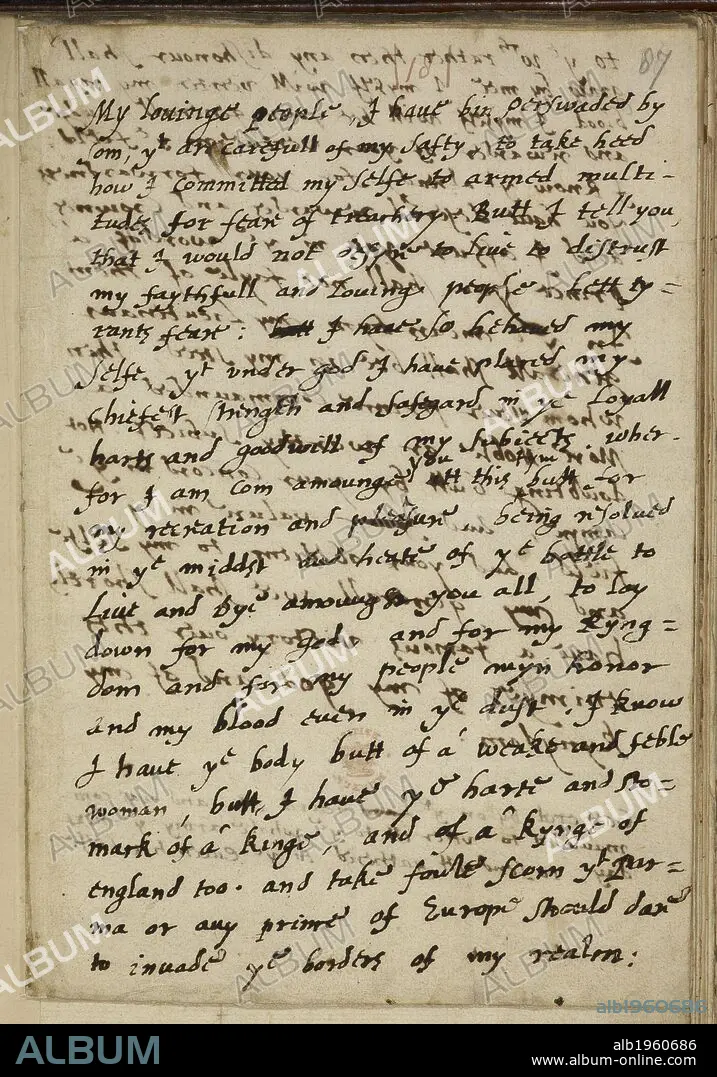 87
My louinge people, I haue bin perswaded by
som, yt are carefull of my safty to take heed
how I committed my selfe to armed multi-
tudes for fear of treachery. Butt I tell you,
that I would not desyre to liue to distrust
my faythfull and louing people. Lett ty=
rants fear: I haue so behaued my
selfe yt vnder god I haue placed my
chiefest strength and safgard in ye loyall
harts and goodwill of my subiects. wher-
for I am com amounge you att this tym butt for
my recreation and pleasure being resolued
in ye middst and heate of ye battle to
liue and dye amoungst you all, to lay
down for my god, and for my kyng=
dom and for my people myn honor
and my blood euen in ye dust. I know
I haue ye body butt of a weake and feble
woman, butt I haue ye harte and sto-
mack of a kinge, and of a kynge of
england too. and take foule scorn yt Par=
ma or any prince of Europe should dare
to inuade ye borders of my realm:
ALBUM
alb1960686
ALBUM
alb1960686
www.album-online.com